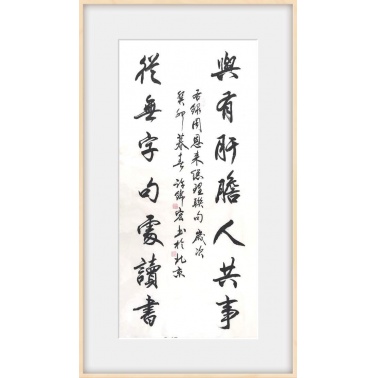 與有肝膽人共事
從無字句處讀書
周恩来總理聯句 歲次
癸卯暮春 許 書於北京